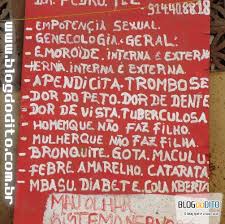 DR. PEDRO, TEL
914408818
- EMPOTENCIA SEXUAL.
- GENECOLOGIA - GERAL.
- EMOROIDE, INTERNA E EXTERNA
HERNIA, INTERNA E EXTERNA.
APENDICITA - TROMBOSE
DOR DO PETO. DOR DE DENTE
DOR DE VISTA. TUBERCULOSA
HOMEMQUE NÃO FAZ FILHO.
MULHERQUE NÃO FAZ FILHA.
BRONQUITE. GOTA. MACULU
FEBRE AMARELHO. CATARATA
MBASU. DIABETE. COLA ABERTA
MAU OLHA
www.blogdodito.com.br
BLOGdoDITO